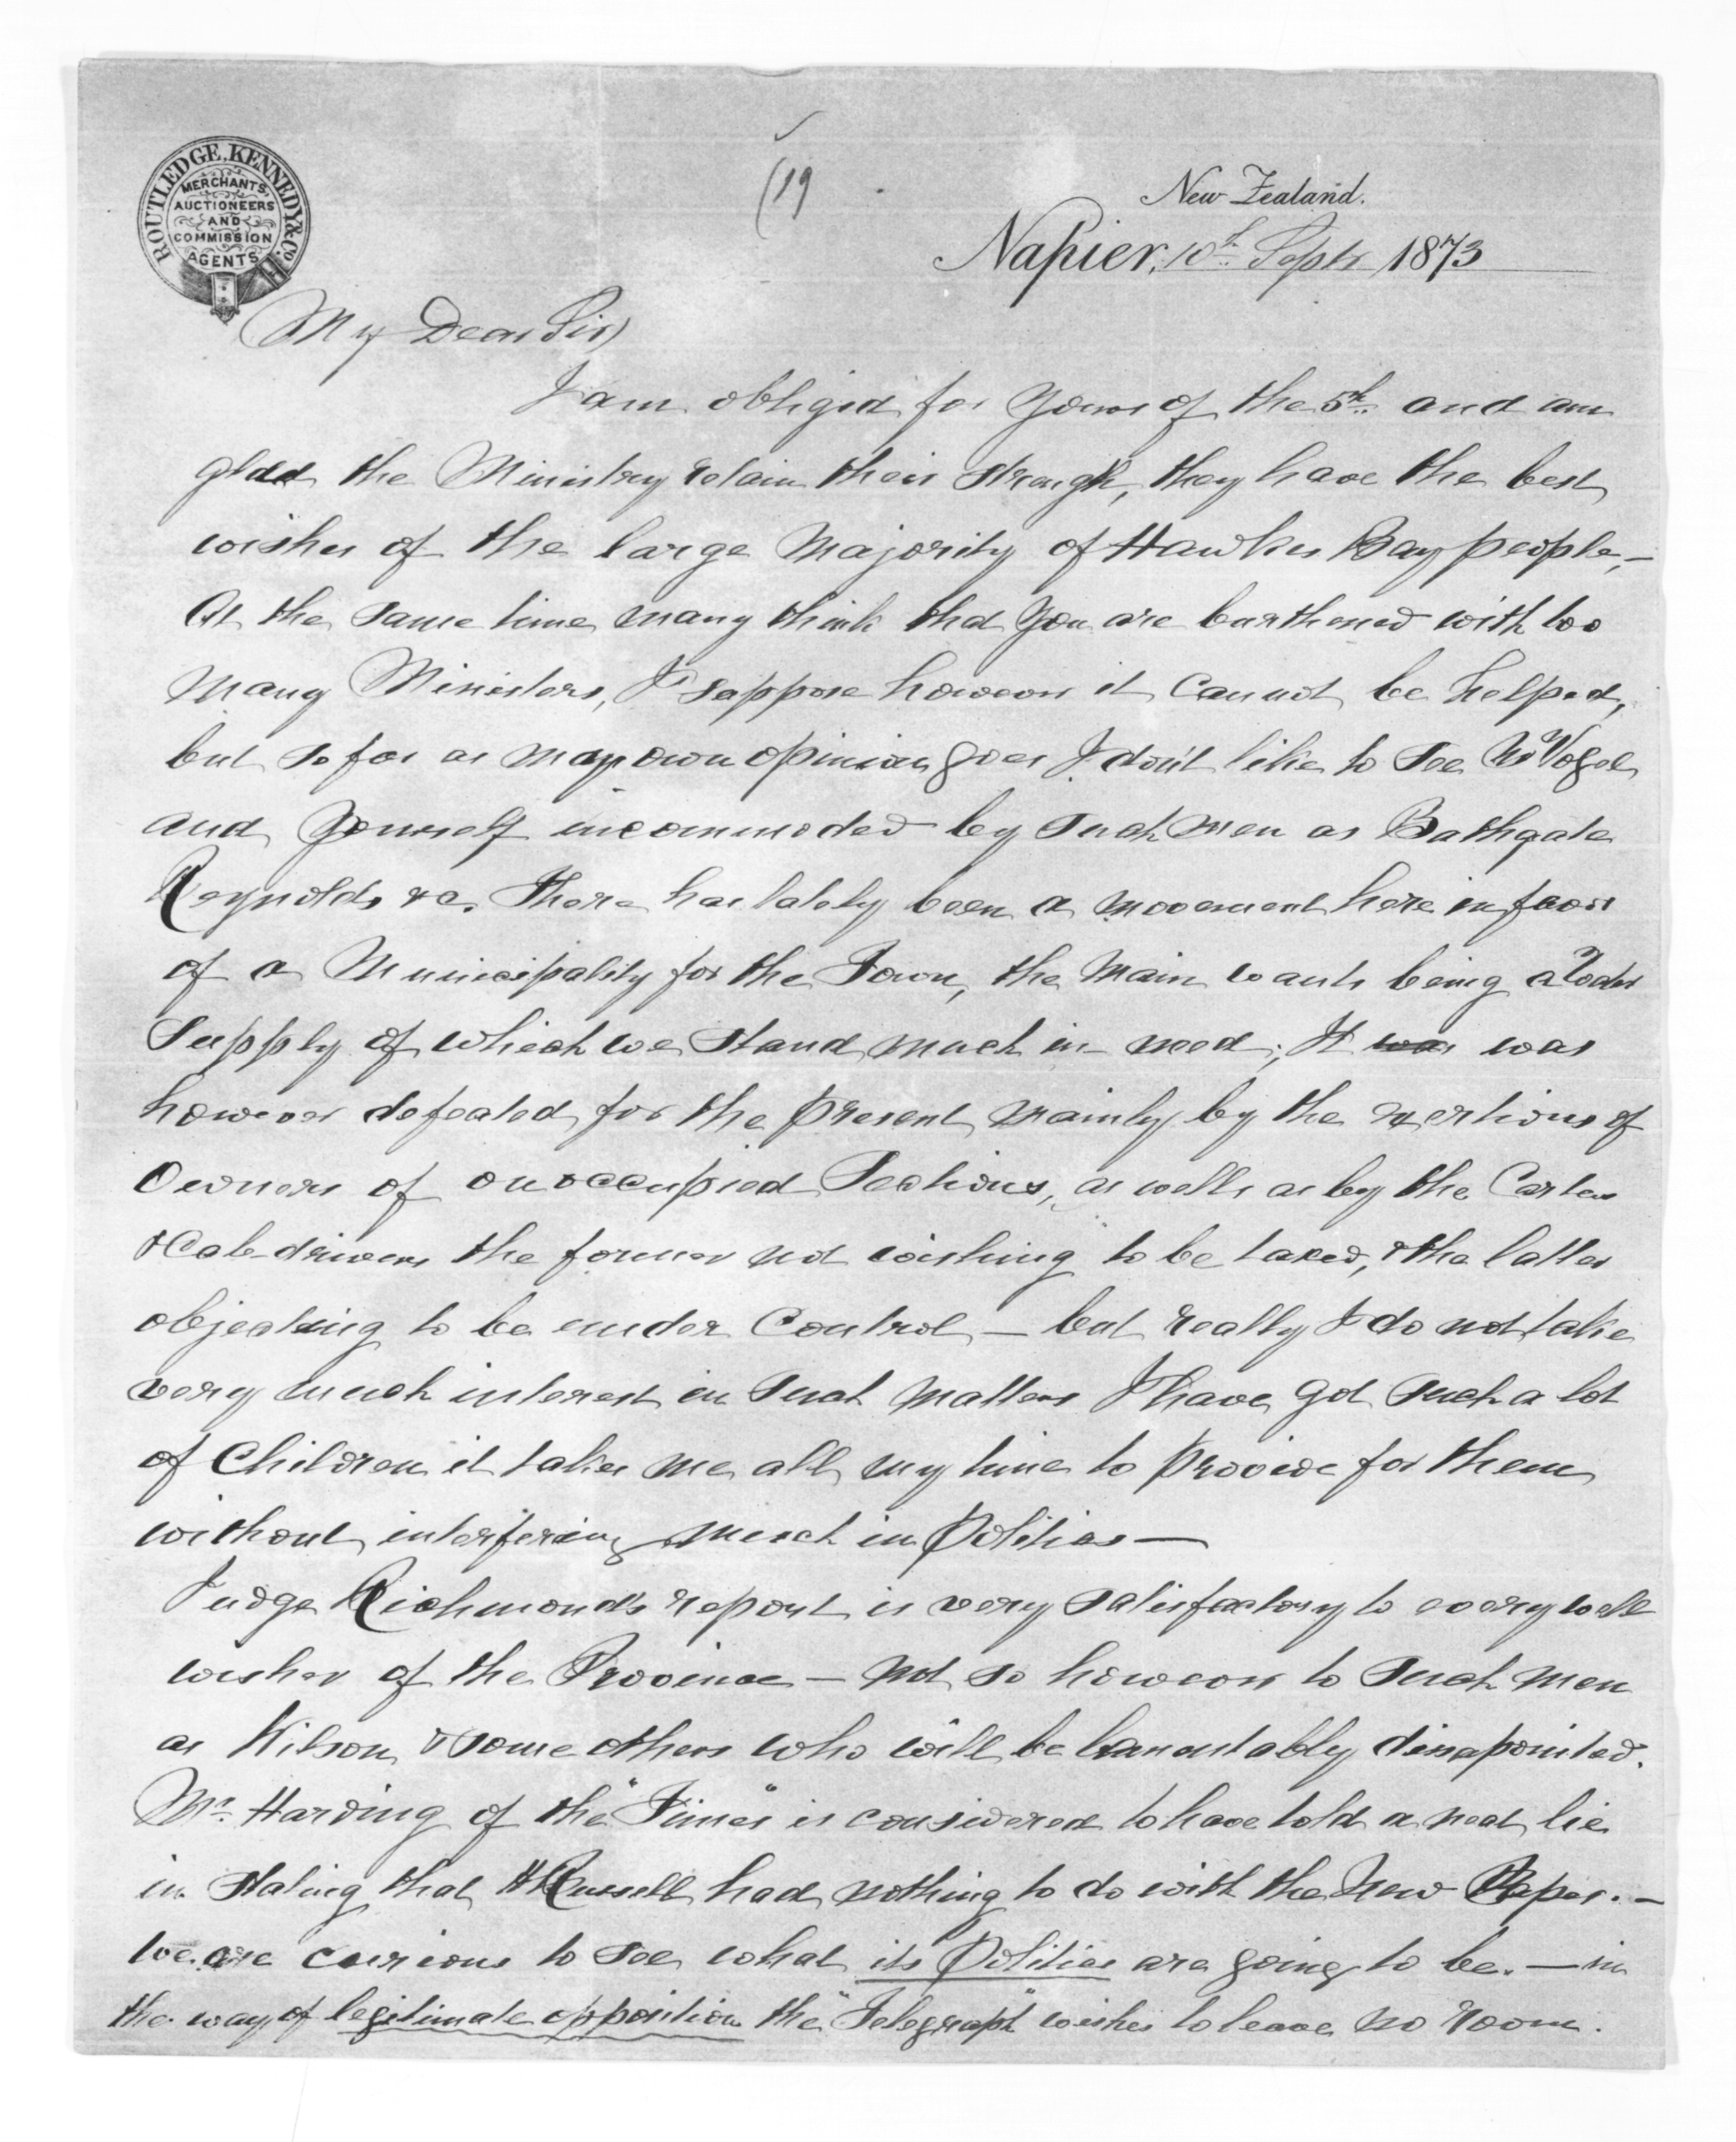 ROUTLEDGE, KENNEDY & Co.
MERCHANTS,
AUCTIONEERS
AND
COMMISSION
AGENTS
(19
New Zealand.
Napier, 10th Septr 1873
My Dear Sir
I am obliged for Yours of the 5th. and am
glad the Ministry retain their strength, they have the best
wishes of the large Majority of Hawkes Bay people, –
At the same time many think that You are burthened with too
many Ministers, I suppose however it cannot be helped,
but so far as my own opinion goes I don't like to see Mr Vogel
and Yourself incommoded by such men as Bathgate
Reynolds &c. There has lately been a movement here in favor
of a Municipality for the Town, the main wants being a Water
Supply of which we stand much in need; It was was
however defeated for the present mainly by the exertions of
Owners of unoccupied Sections, as wells as by the Carters
& Cab-drivers the former not wishing to be taxed, & the latter
objecting to be under Control – but really I do not take
very much interest in such matters I have got such a lot
of Children it takes me all my time to provide for them
without interfering much in Politics —
Judge Richmond's report is very satisfactory to every well
wisher of the Province – not so however to such men
as Wilson & some others who will be lamentably dissapointed.
Mr. Harding of the "Times" is considered to have told a neat lie
in stating that H Russell had nothing to do with the New Paper. –
we are curious to see what its Politics are going to be. — in
the way of legitimate opposition the "Telegraph" wishes to leave no room.